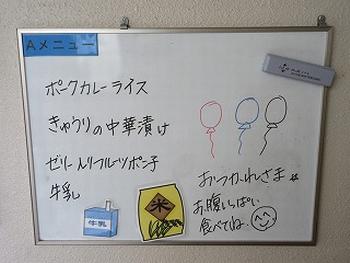 Aメニュー
ポークカレーライス
きゅうりの中華漬け
ゼリー入りフルーツポンチ
牛乳
牛乳
米
おつかれさま
お腹いっぱい
食べてね